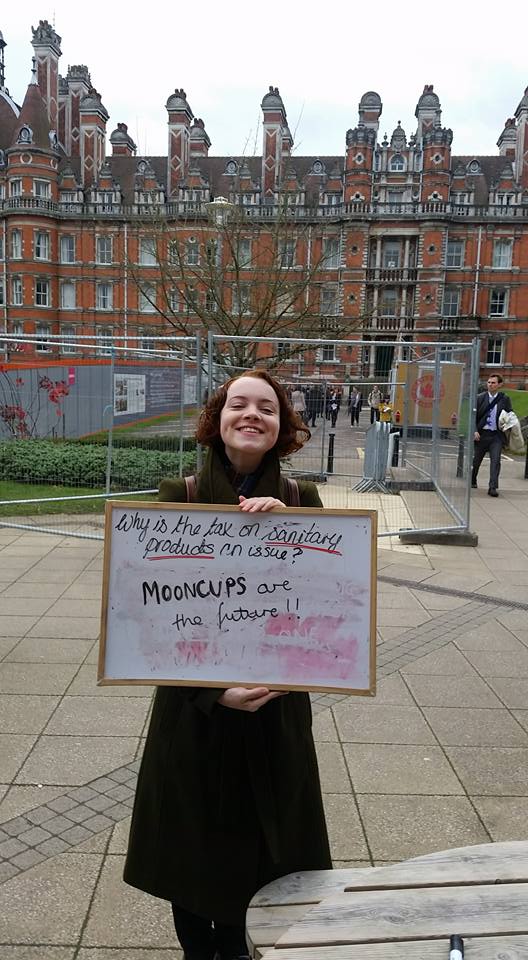 Why is the tax on sanitary
products an issue?
MOONCUPS are
the future!!